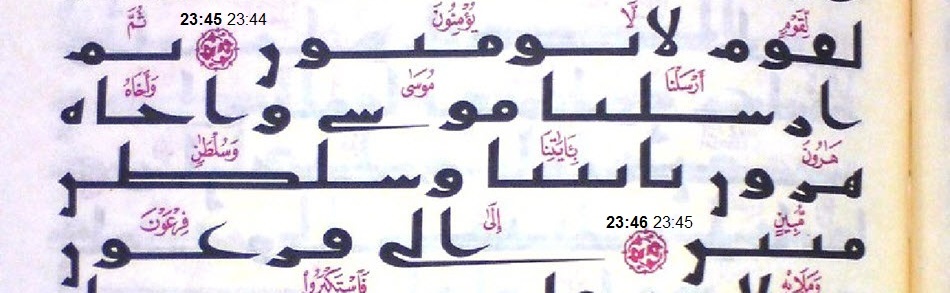 لِّقَوْمٍ لَّا يُؤْمِنُونَ 23:44 23:45 ثُمَّ
لقوم لا يومنون ثم
أَرْسَلْنَا مُوسَىٰ وَأَخَاهُ
ارسلنا موسى واخاه
هَٰرُونَ بِـَٔايَٰتِنَا وَسُلْطَٰنٍ
هرون باييتنا وسلطن
مُّبِينٍ 23:45 23:46 إِلَىٰ فِرْعَوْنَ
مبين الى فرعون
وَمَلَإِيْهِ فَٱسْتَكْبَرُوا۟